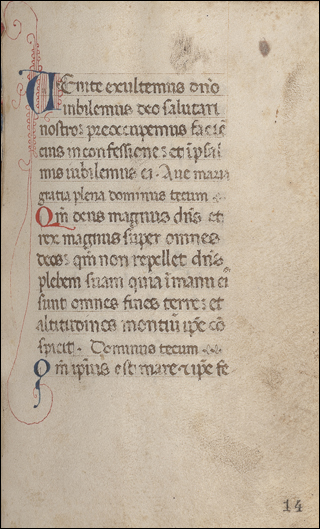 Venite exultemus dño
iubilemus deo salutari
nostro: preoccupemus faciē
eius in confessione: et ī psal
mis iubilemus ei · Aue maria
gratia plena dominus tecum
Qm̄ deus magnus dn̄s et
rex magnus super omnes
deos: qm̄ non repellet dn̄s
plebem suam quia ī manu ei
sunt omnes fines terre: et
altitudines montiū ip̄e cō
spicit · Dominus tecum
Qm̄ ipius est mare · ⁊ ip̄e fe
14